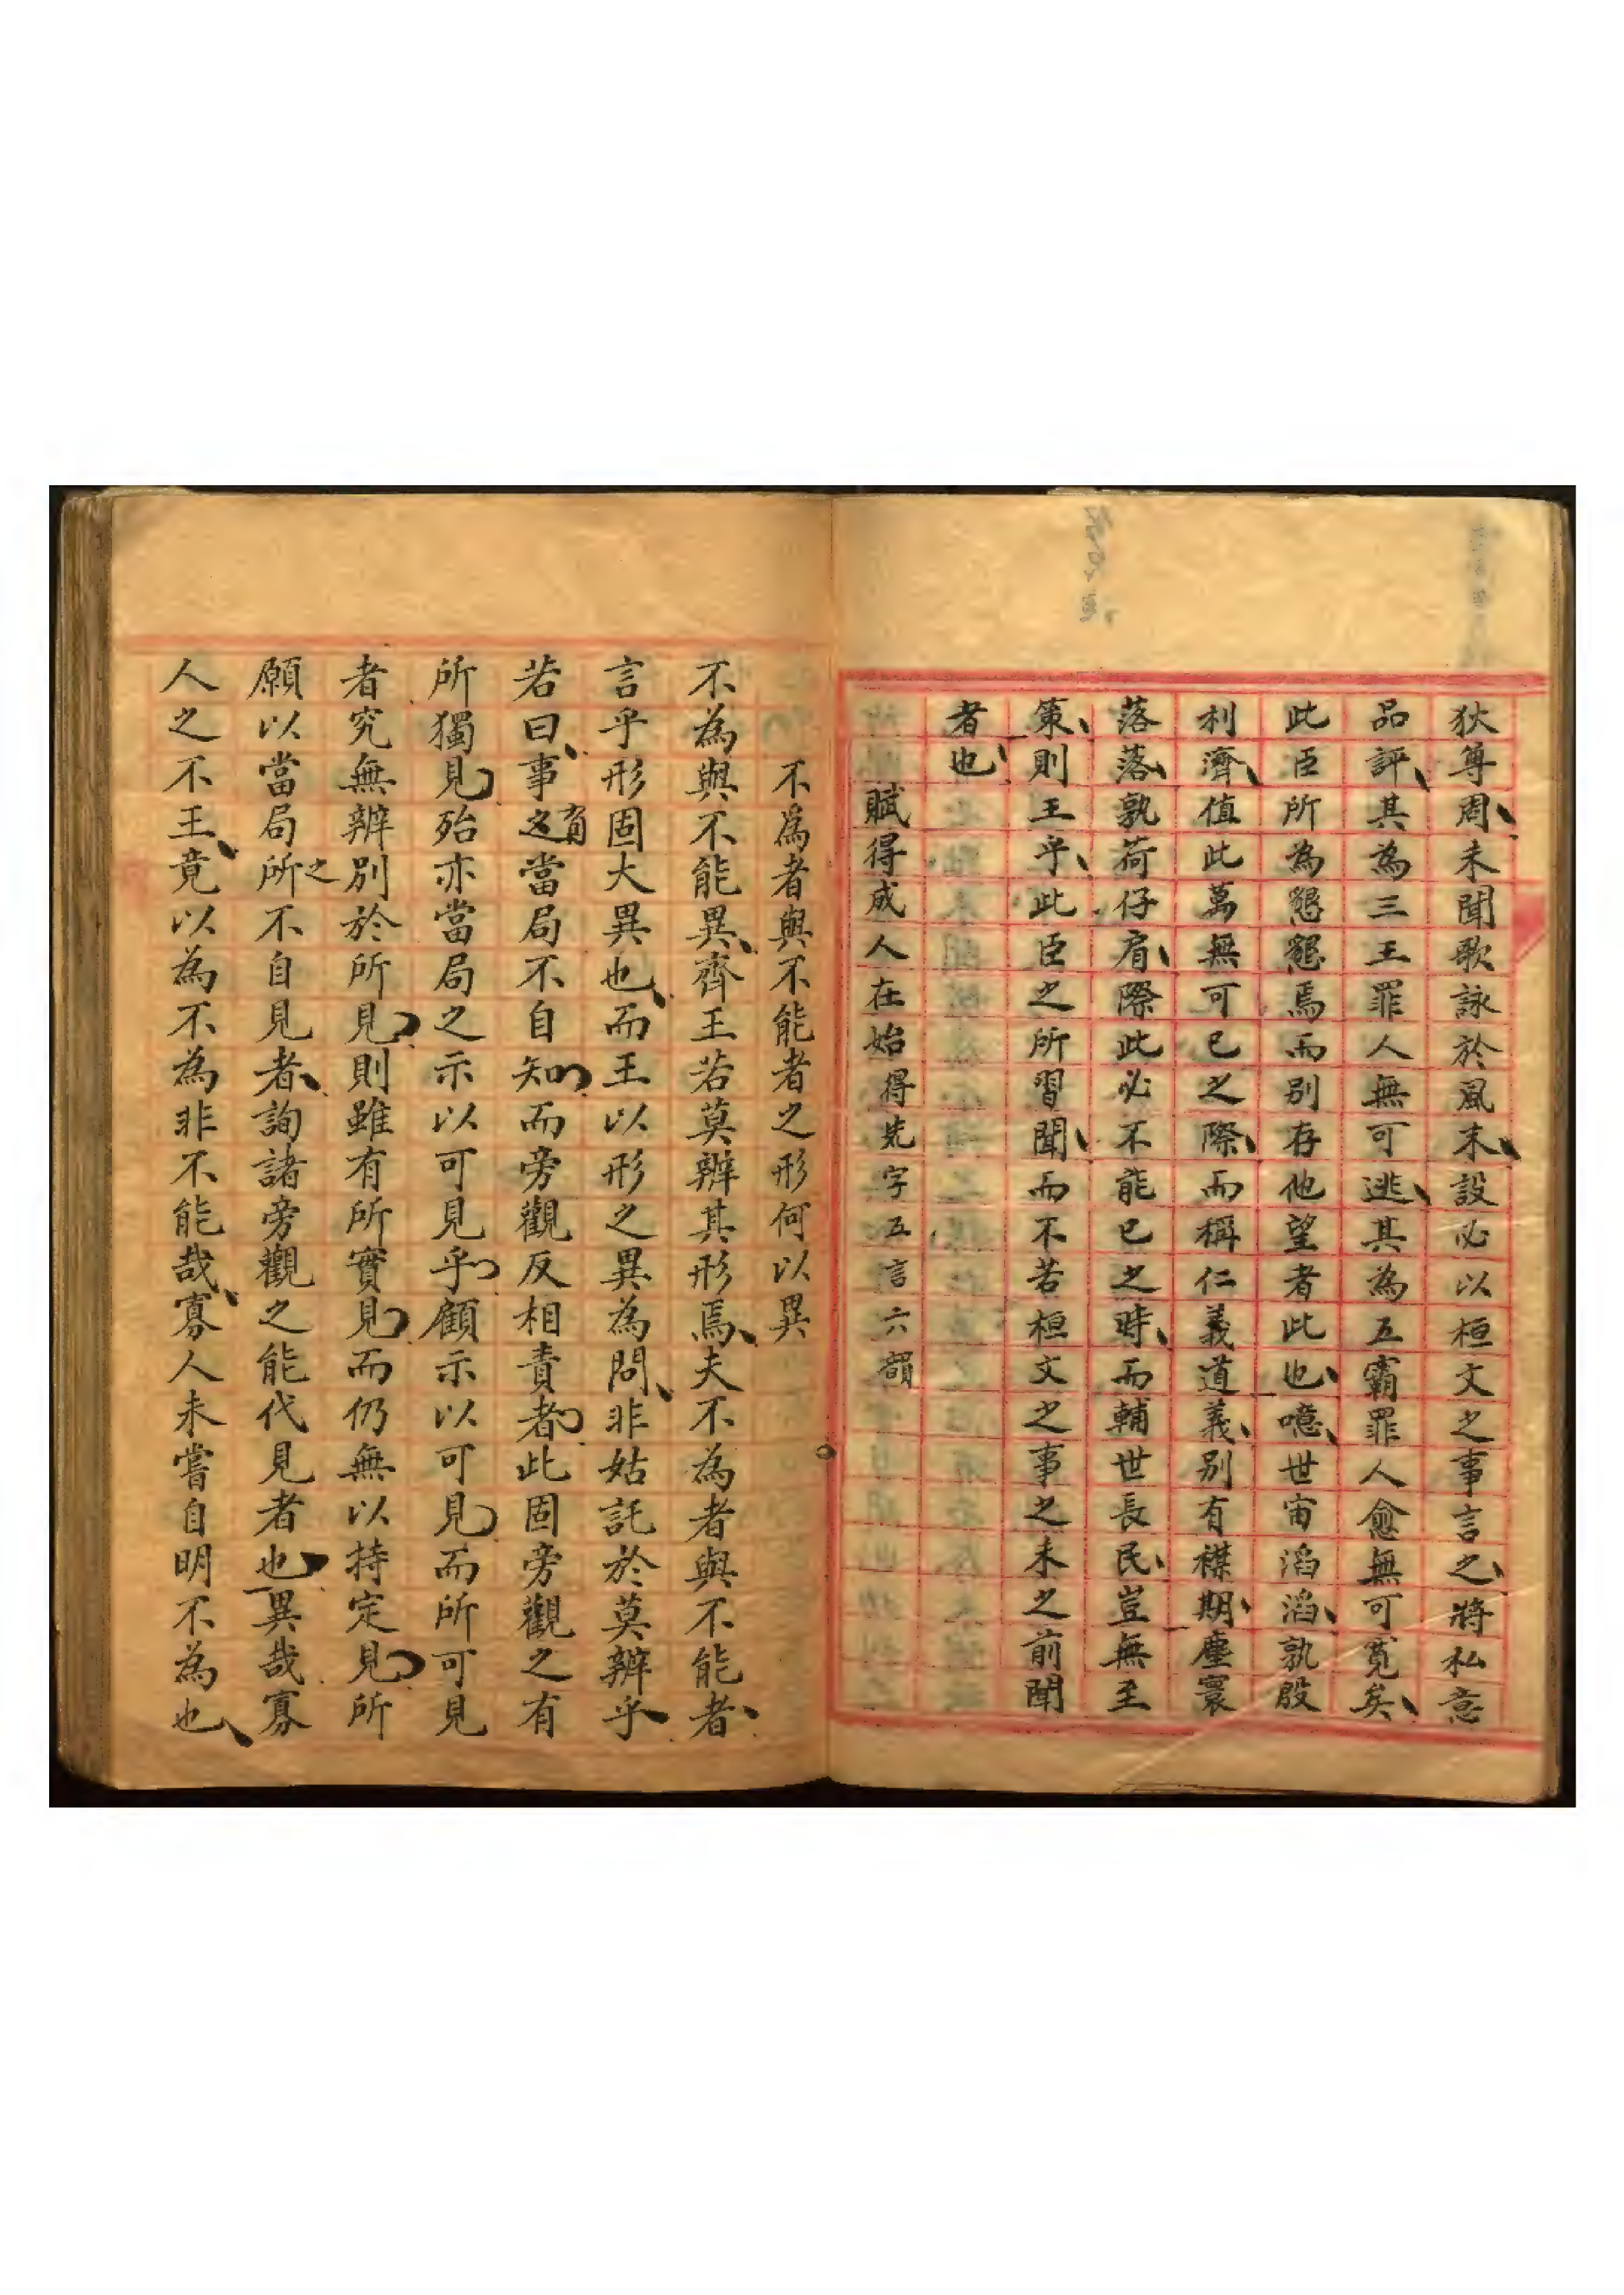 狄尊周未聞歌詠於風末設必以桓文之事言之將私意
品評其為三王罪人無可逃其為五霸罪人愈無可寬矣
此臣所為懇懇焉而別存他望者此也噫世宙滔滔孰殷
利濟值此萬無可已之際而稱仁義道義別有襟期塵寰
落落孰荷仔肩際此必不能已之時而輔世長民豈無至
策則王乎此臣之所習聞而不若桓文之事之未之前聞
者也
賦得成人在始得先字五言六韻
不為者與不能者之形何以異
不為與不能異齊王若莫辨其形焉夫不為者與不能者
言乎形固大異也而王以形之異為問非姑託於莫辨乎
若曰事有當局不自知而旁觀反相責者此固旁觀之有
所獨見殆亦當局之示以可見乎顧示以可見而所可見
者究無辨別於所見則雖有所實見而仍無以持定見所
願以當局之所不自見者詢諸旁觀之能代見者也異哉寡
人之不王竟以為不為非不能哉寡人未嘗自明不為也